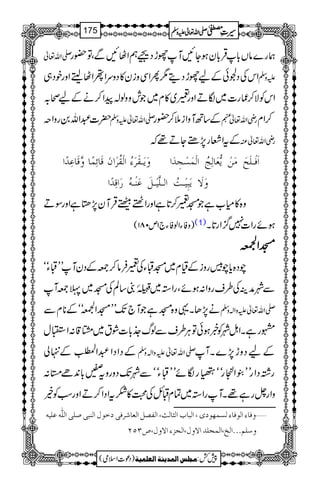 سیرتِ مصطفیٰ صلی اللہ تعالیٰ علیہ وسلم 175
ہمارے ماں باپ آپ پر قربان ہو جائیں آپ چھوڑ دیجئے ہم اٹھائیں گے، تو حضور صلی اللہ تعالیٰ
علیہ وسلم اس کی دلجوئی کے لئے چھوڑ دیتے مگر پھر اسی وزن کا دوسرا پتھر اٹھا لیتے اور خود ہی
اس کو لاکر عمارت میں لگاتے اور تعمیری کام میں جوش و ولولہ پیدا کرنے کے لیے صحابہ
کرام رضی اللہ تعالیٰ عنہم کے ساتھ آواز ملا کر حضور صلی اللہ تعالیٰ علیہ وسلم حضرت عبداللہ بن رواحہ
رضی اللہ تعالیٰ عنہ کے یہ اشعار پڑھتے جاتے تھے کہ
اَفْلَحَ مَنْ یُّعَالِجُ الْمَسْجِدَا وَیَقْرَءُ الْقُرْاٰنَ قَائِمًا وَّقَاعِدًا
وَلَا یَبِیْتُ اللَّیْلَ عَنْهُ رَاقِدًا
وہ کامیاب ہے جو مسجد تعمیر کرتا ہے اور اٹھتے بیٹھتے قرآن پڑھتا ہے اور سوتے
ہوئے رات نہیں گزارتا۔ (1) (وفاء الوفاء ج۱ص۱۸۰)
مسجد الجمعہ
چودہ یا چوبیس روز کے قیام میں مسجدِ قباء کی تعمیر فرما کر جمعہ کے دن آپ ’’قباء‘‘
سے شہرِ مدینہ کی طرف روانہ ہوئے، راستہ میں قبیلۂ بنی سالم کی مسجد میں پہلا جمعہ آپ
صلی اللہ تعالیٰ علیہ والہٖ وسلم نے پڑھا۔ یہی وہ مسجد ہے جو آج تک ’’مسجد الجمعہ‘‘ کے نام سے
مشہور ہے۔ اہلِ شہر کو خبر ہوئی تو ہر طرف سے لوگ جذباتِ شوق میں مشتاقانہ استقبال
کے لیے دوڑ پڑے۔ آپ صلی اللہ تعالیٰ علیہ والہٖ وسلم کے دادا عبدالمطلب کے ننہالی
رشتہ دار ’’بنو النجار‘‘ ہتھیار لگائے ’’قباء‘‘ سے شہر تک دو رویہ صفیں باندھے مستانہ
وار چل رہے تھے۔ آپ راستہ میں تمام قبائل کی محبت کا شکریہ ادا کرتے اور سب کو خیر
وفاء الوفاء لسمهودی، الباب الثالث، الفصل العاشر فی دخول النبی صلی الله علیه
وسلم...الخ، المجلد الاول، الجزء الاول، ص٢٥٣
پیش کش: مجلس المدینة العلمیة (دعوتِ اسلامی)